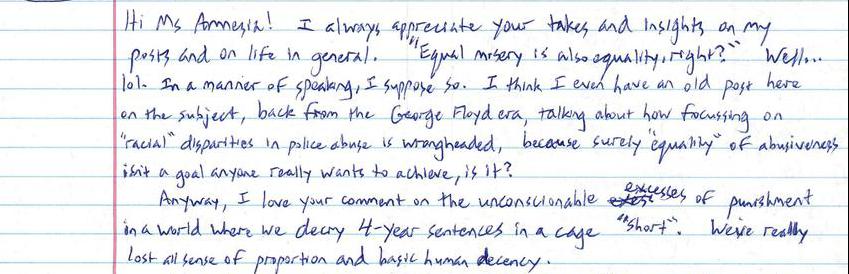 Hi Ms Amnesia! I always appreciate your takes and insights on my
posts and on life in general. "“Equal misery is also equality, right?”" Well...
lol. In a manner of speaking, I suppose so. I think I even have an old post here
on the subject, back from the George Floyd era, talking about how focussing on
"racial" disparities in police abuse is wrongheaded, because surely "equality" of abusiveness
isn't a goal anyone really wants to achieve, is it?
Anyway, I love your comment on the unconscionable excesses of punishment
in a world where we decry 4-year sentences in a cage "“short”. We've really
lost all sense of proportion and basic human decency.